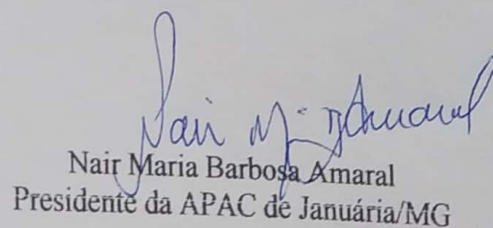 Nair M. B Amaral
Nair Maria Barbosa Amaral
Presidente da APAC de Januária/MG